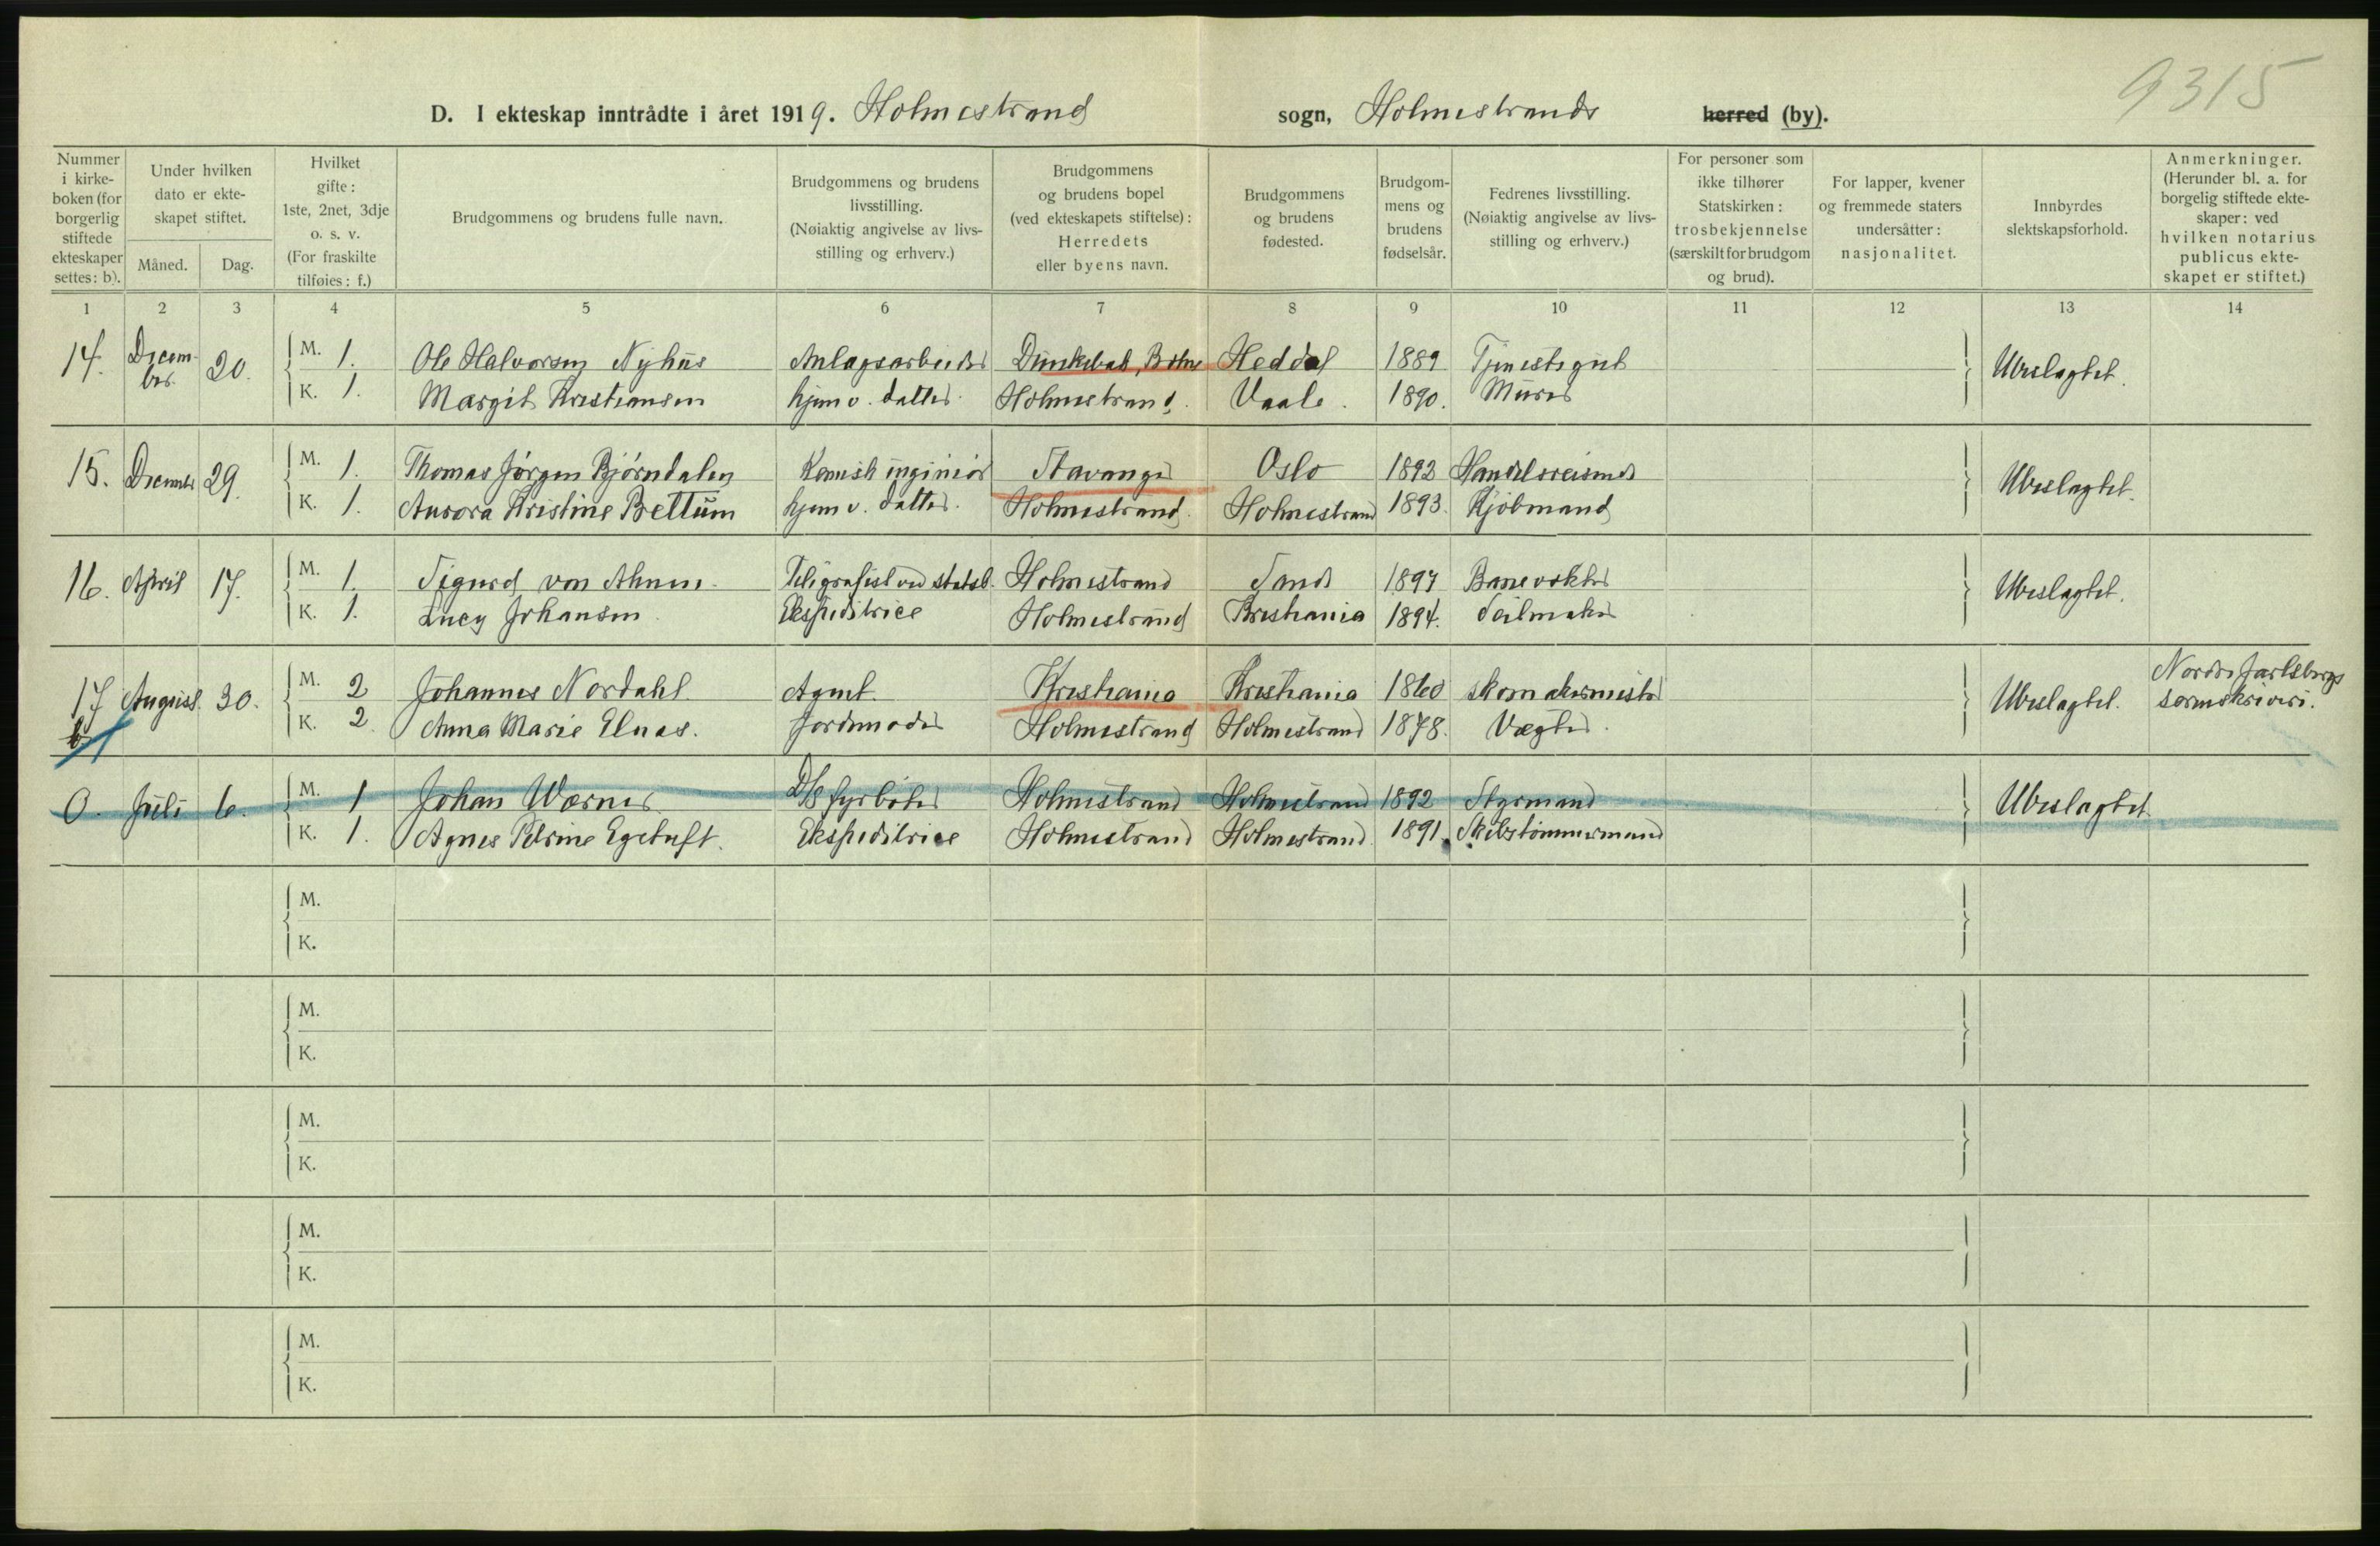 9315
D. I ekteskap inntrådte i året 1919. Holmestrand sogn, Holmestrands herred (by).
Nummer i kirkeboken (for borgerlig stiftede ekteskaper settes: b).
Under hvilken dato er ekteskapet stiftet.
Måned. Dag.
Hvilket gifte: 1ste, 2net, 3dje o. s. v. (For fraskilte tilføies: f.)
Brudgommens og brudens fulle navn.
Brudgommens og brudens livsstilling. (Nøiaktig angivelse av livsstilling og erhverv.)
Brudgommens og brudens bopel (ved ekteskapets stiftelse): Herredets eller byens navn.
Brudgommens og brudens fødested.
Brudgommens og brudens fødselsår.
Fedrenes livsstilling. (Nøiaktig angivelse av livsstilling og erhverv.)
For personer som ikke tilhører Statskirken: trosbekjennelse (særskilt for brudgom og brud).
For lapper, kvener og fremmede staters undersåtter: nasjonalitet.
Innbyrdes slektskapsforhold.
Anmerkninger. (Herunder bl. a. for borgelig stiftede ekteskaper: ved hvilken notarius publicus ekteskapet er stiftet.)
1 2 3 4 5 6 7 8 9 10 11 12 13 14
14. December 20. M. 1. Ole Halvorsen Nyhus Anlægsarbeider Botne Heddal 1889 Tjenestegut Ubeslægtet.
K. 1. Margit Kristiansen hjemv. datter Holmestrand. Vaale. 1890. Murer
15. December 29. M. 1. Thomas Jørgen Bjørndalen Kemisk inginiør Stavanger Oslo 1892 Handelsreisende Ubeslægtet.
K. 1. Aurora Kristine Bettum hjemv. datter. Holmestrand. Holmestrand 1893. Kjøbmand
16. April 17. M. 1. Sigurd von Ahnen. Telegrafist ved statsb. Holmestrand Sand 1897 Banevokter Ubeslægtet.
K. 1. Lucy Johansen Ekspeditrice Holmestrand Kristiania 1894. Seilmaker
17 b August 30. M. 2 Johannes Nordahl Agent. Kristiania Kristiania 1860 skomakermester Ubeslægtet. Nordre Jarlsbergs sorenskriveri.
K. 2. Anna Marie Elnas. Jordmoder Holmestrand Holmestrand 1878. Vægter.
0. Juli 6. M. 1 Johan Wærner D/S fyrbøter Holmestrand Holmestrand 1892 Styrmand Ubeslægtet
K. 1. Agnes Petrine Egetuft. Ekspeditrice Holmestrand Holmestrand. 1891. Skibstømmermand
M.
K.
M.
K.
M.
K.
M.
K.
M.
K.